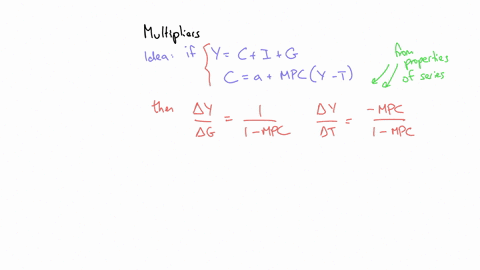 Multipliers
Idea: if { Y = C + I + G
C = a + MPC (Y - T)
from properties of series
then ΔY/ΔG = 1/(1-MPC) ΔY/ΔT = -MPC/(1-MPC)